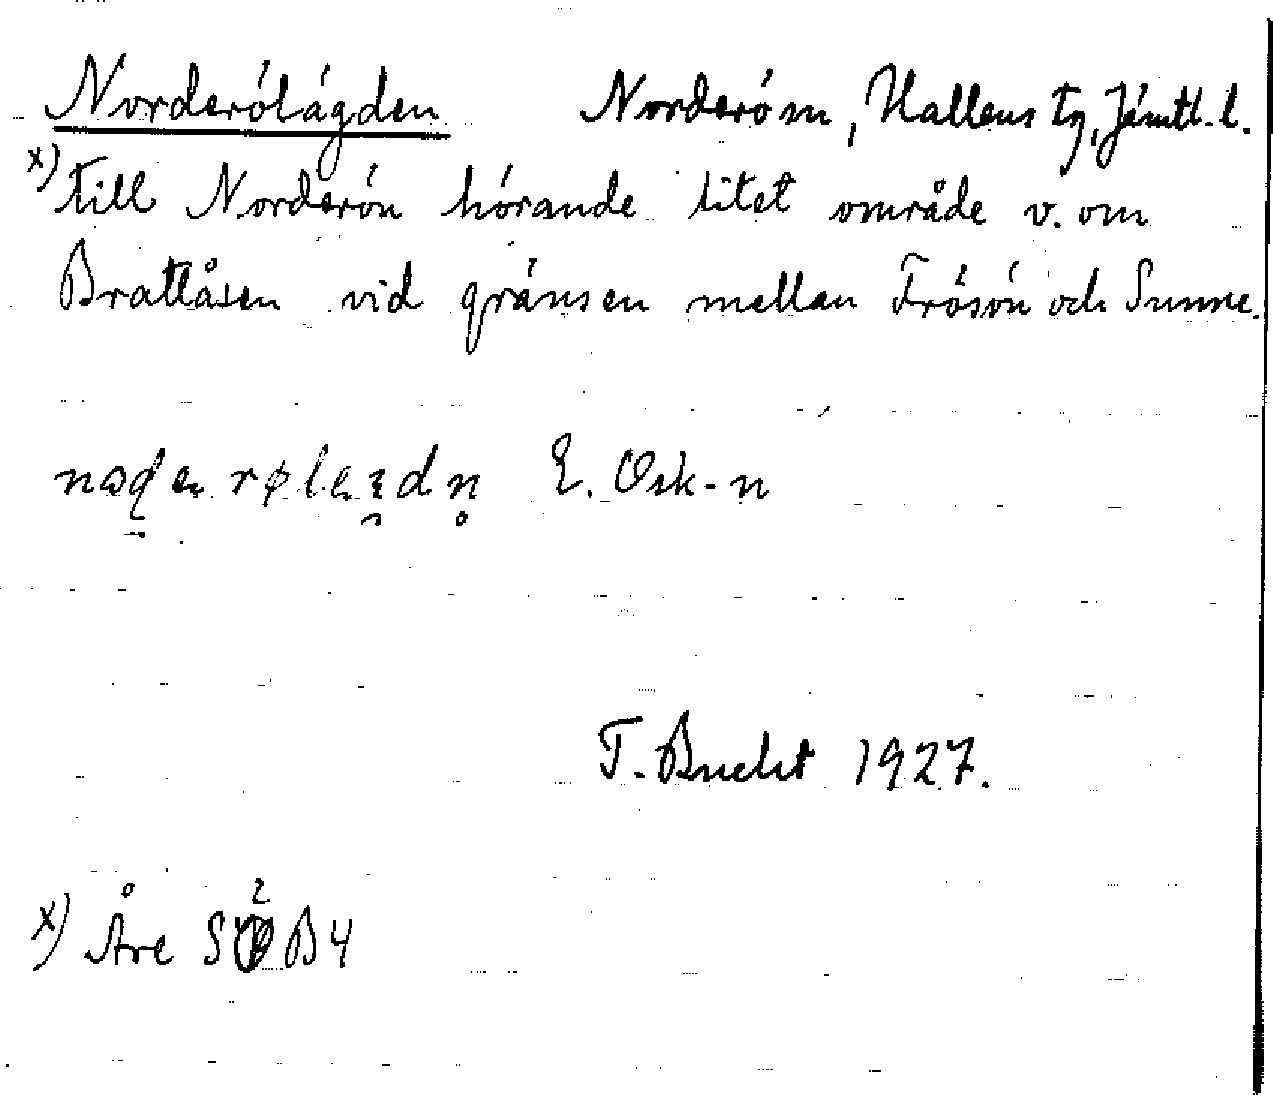 Norderölägden Norderö sn, Hallens tg, Jämtl. l.
x) till Norderön hörande litet område v. om
Brattåsen vid gränsen mellan Frösön och Sunne.
E. Osk-n
T. Bucht 1927.
x) Åre SO B4